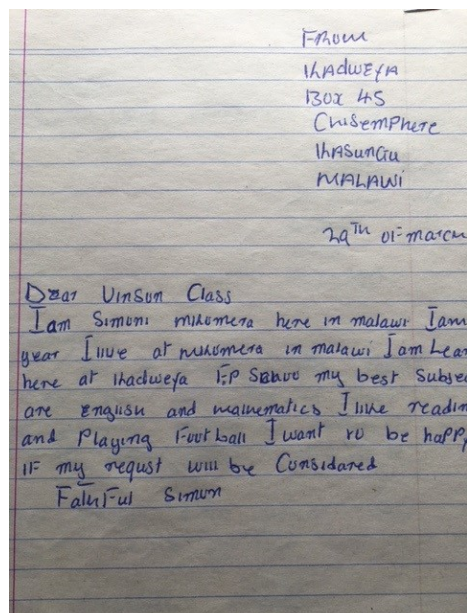 From
Khadwefa
Box 45
Chisemphere
Khasungu
MALAWI
29TH OF march
Dear Vinsun Class
I am Simoni mkhomera here in malawi I am
year I live at mkhomera in malawi I am Lear
here at khadwefa FP my best Subjec
are English and mathematics I like readin
and Playing Football I want to be happy
IF my requst will be Considared
FaithFul Simon